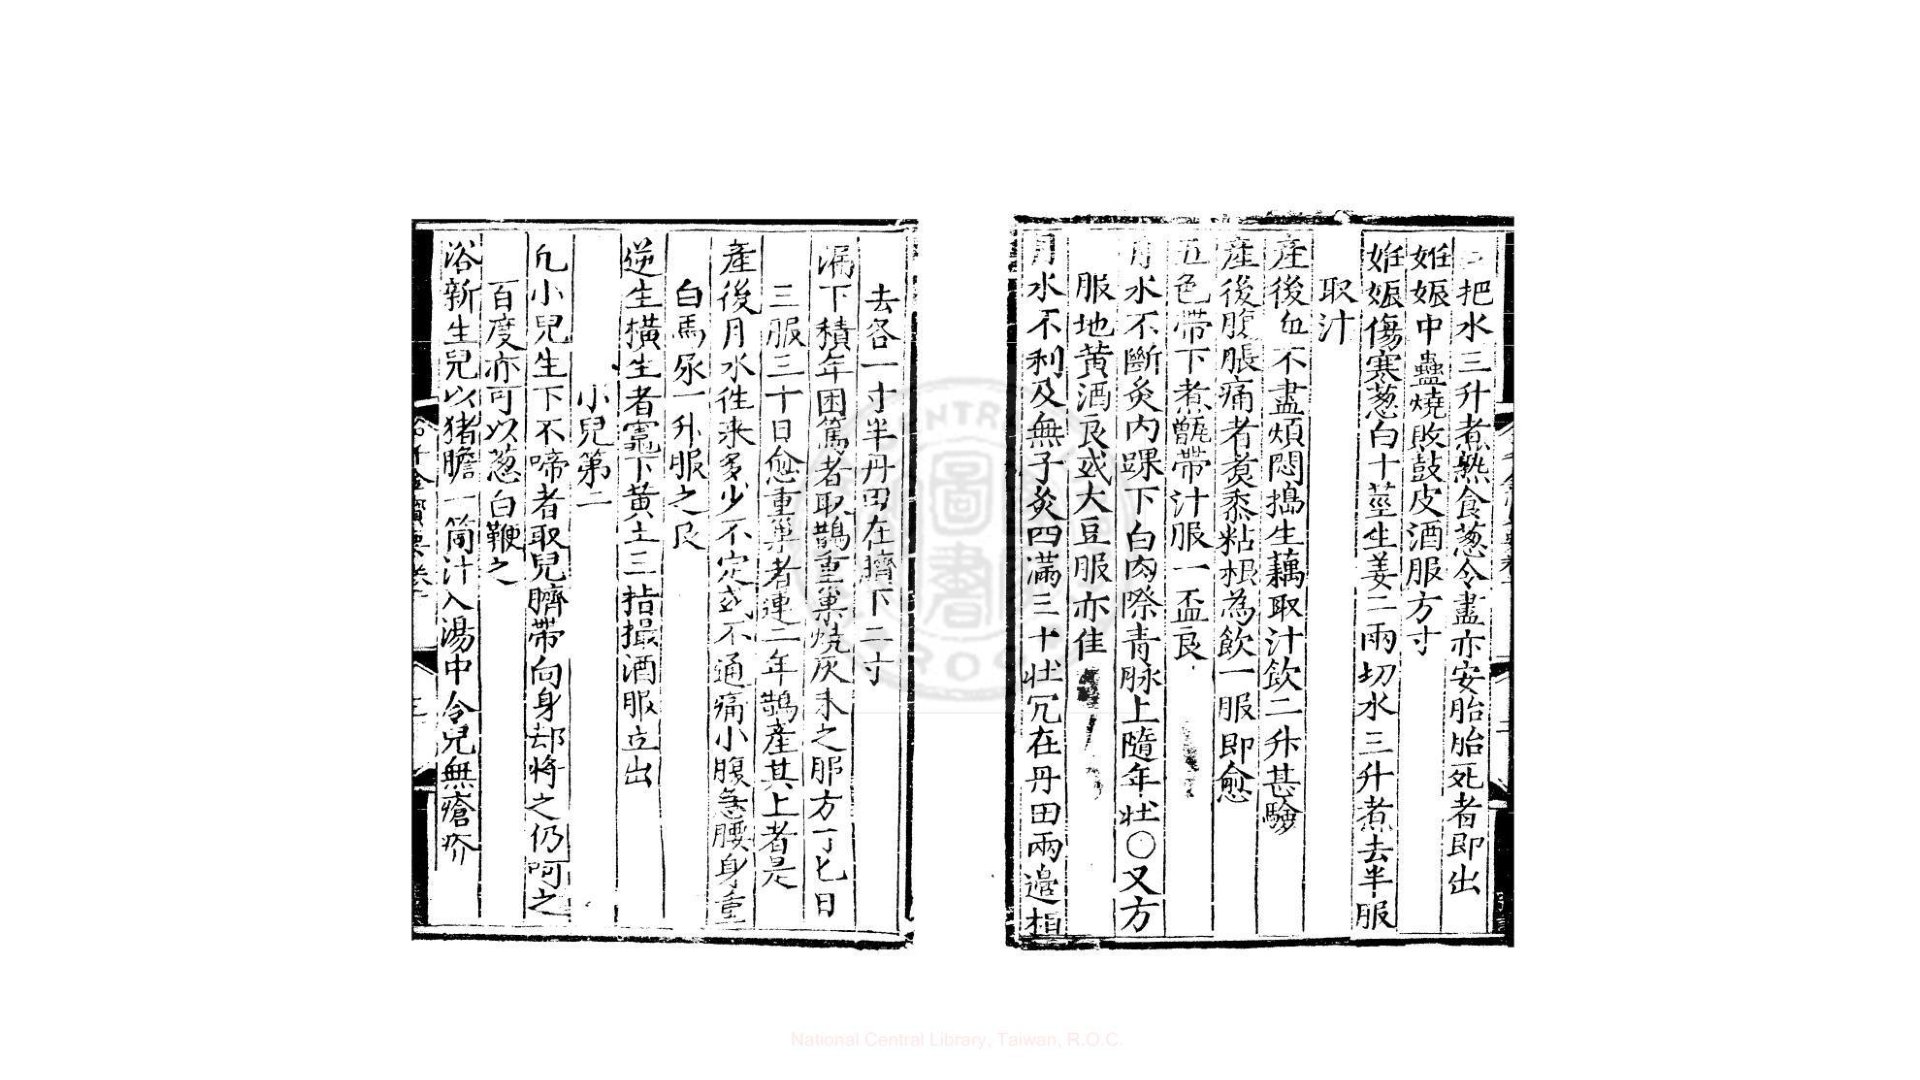 二把水三升煮熟食葱令盡亦安胎胎死者即出
妊娠中蠱燒敗鼓皮酒服方寸
妊娠傷寒葱白十莖生姜二兩切水三升煮去半服
取汁
產後血不盡煩悶搗生藕取汁飲二升甚驗
產後腹脹痛者煮黍粘根為飲一服即愈
五色帶下煮甑帶汁服一盃良
月水不斷灸内踝下白肉際青脉上隨年壮○又方
服地黄酒良或大豆服亦佳
月水不利及無子灸四滿三十壮穴在丹田兩邊相
去各一寸半丹田在臍下二寸
漏下積年困篤者取鵲重巢燒灰末之服方寸匕日
三服三十日愈重巢者連二年鵲產其上者是
產後月水徃来多少不定或不通痛小腹急腰身重
白馬尿一升服之良
逆生横生者竈下黄土三指撮酒服立出
小兒第二
凡小兒生下不啼者取兒臍帶向身却捋之仍呵之
百度亦可以葱白鞭之
浴新生兒以猪膽一箇汁入湯中令兒無瘡疥
National Central Library, Taiwan, R.O.C.